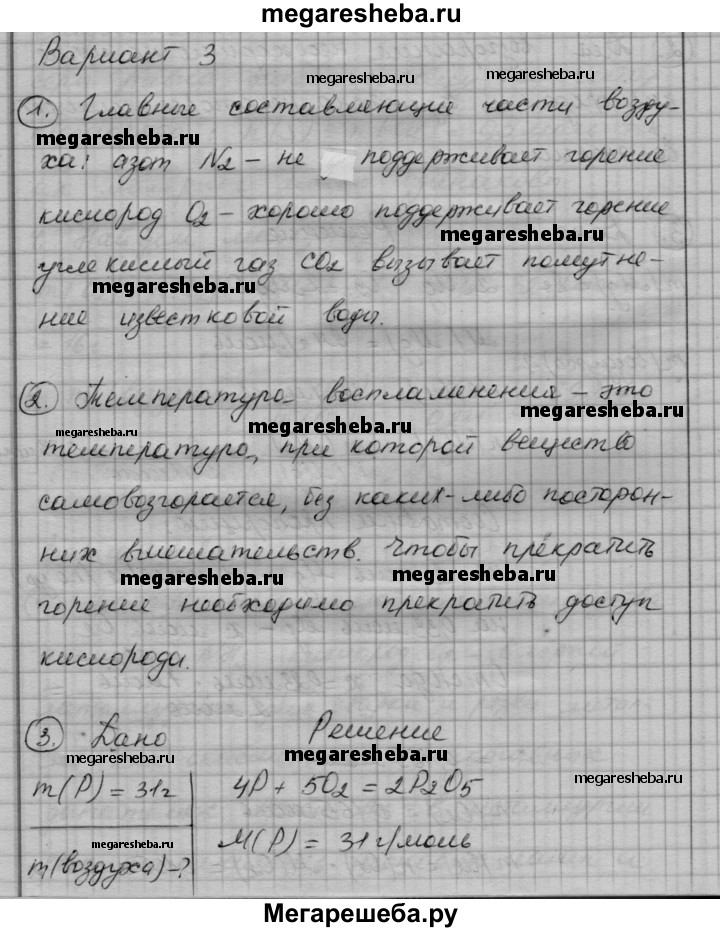 megaresheba.ru
Вариант 3
megaresheba.ru
megaresheba.ru
1. Главные составляющие части возду-
megaresheba.ru
ха: азот N2 – не поддерживает горение
кислород O2 – хорошо поддерживает горение
megaresheba.ru
углекислый газ CO2 вызывает помутне-
megaresheba.ru
ние известковой воды.
2. Температура воспламенения – это
megaresheba.ru
megaresheba.ru
megaresheba.ru
температура, при которой вещество
самовозгорается, без каких-либо посторон-
них вмешательств. Чтобы прекратить
megaresheba.ru
megaresheba.ru
горение необходимо прекратить доступ
кислорода.
3. Дано Решение
megaresheba.ru
megaresheba.ru
m(P) = 31г 4P + 5O2 = 2P2O5
megaresheba.ru
M(P) = 31 г/моль
m(воздуха) – ?
megaresheba.ru
Мегарешеба.ру